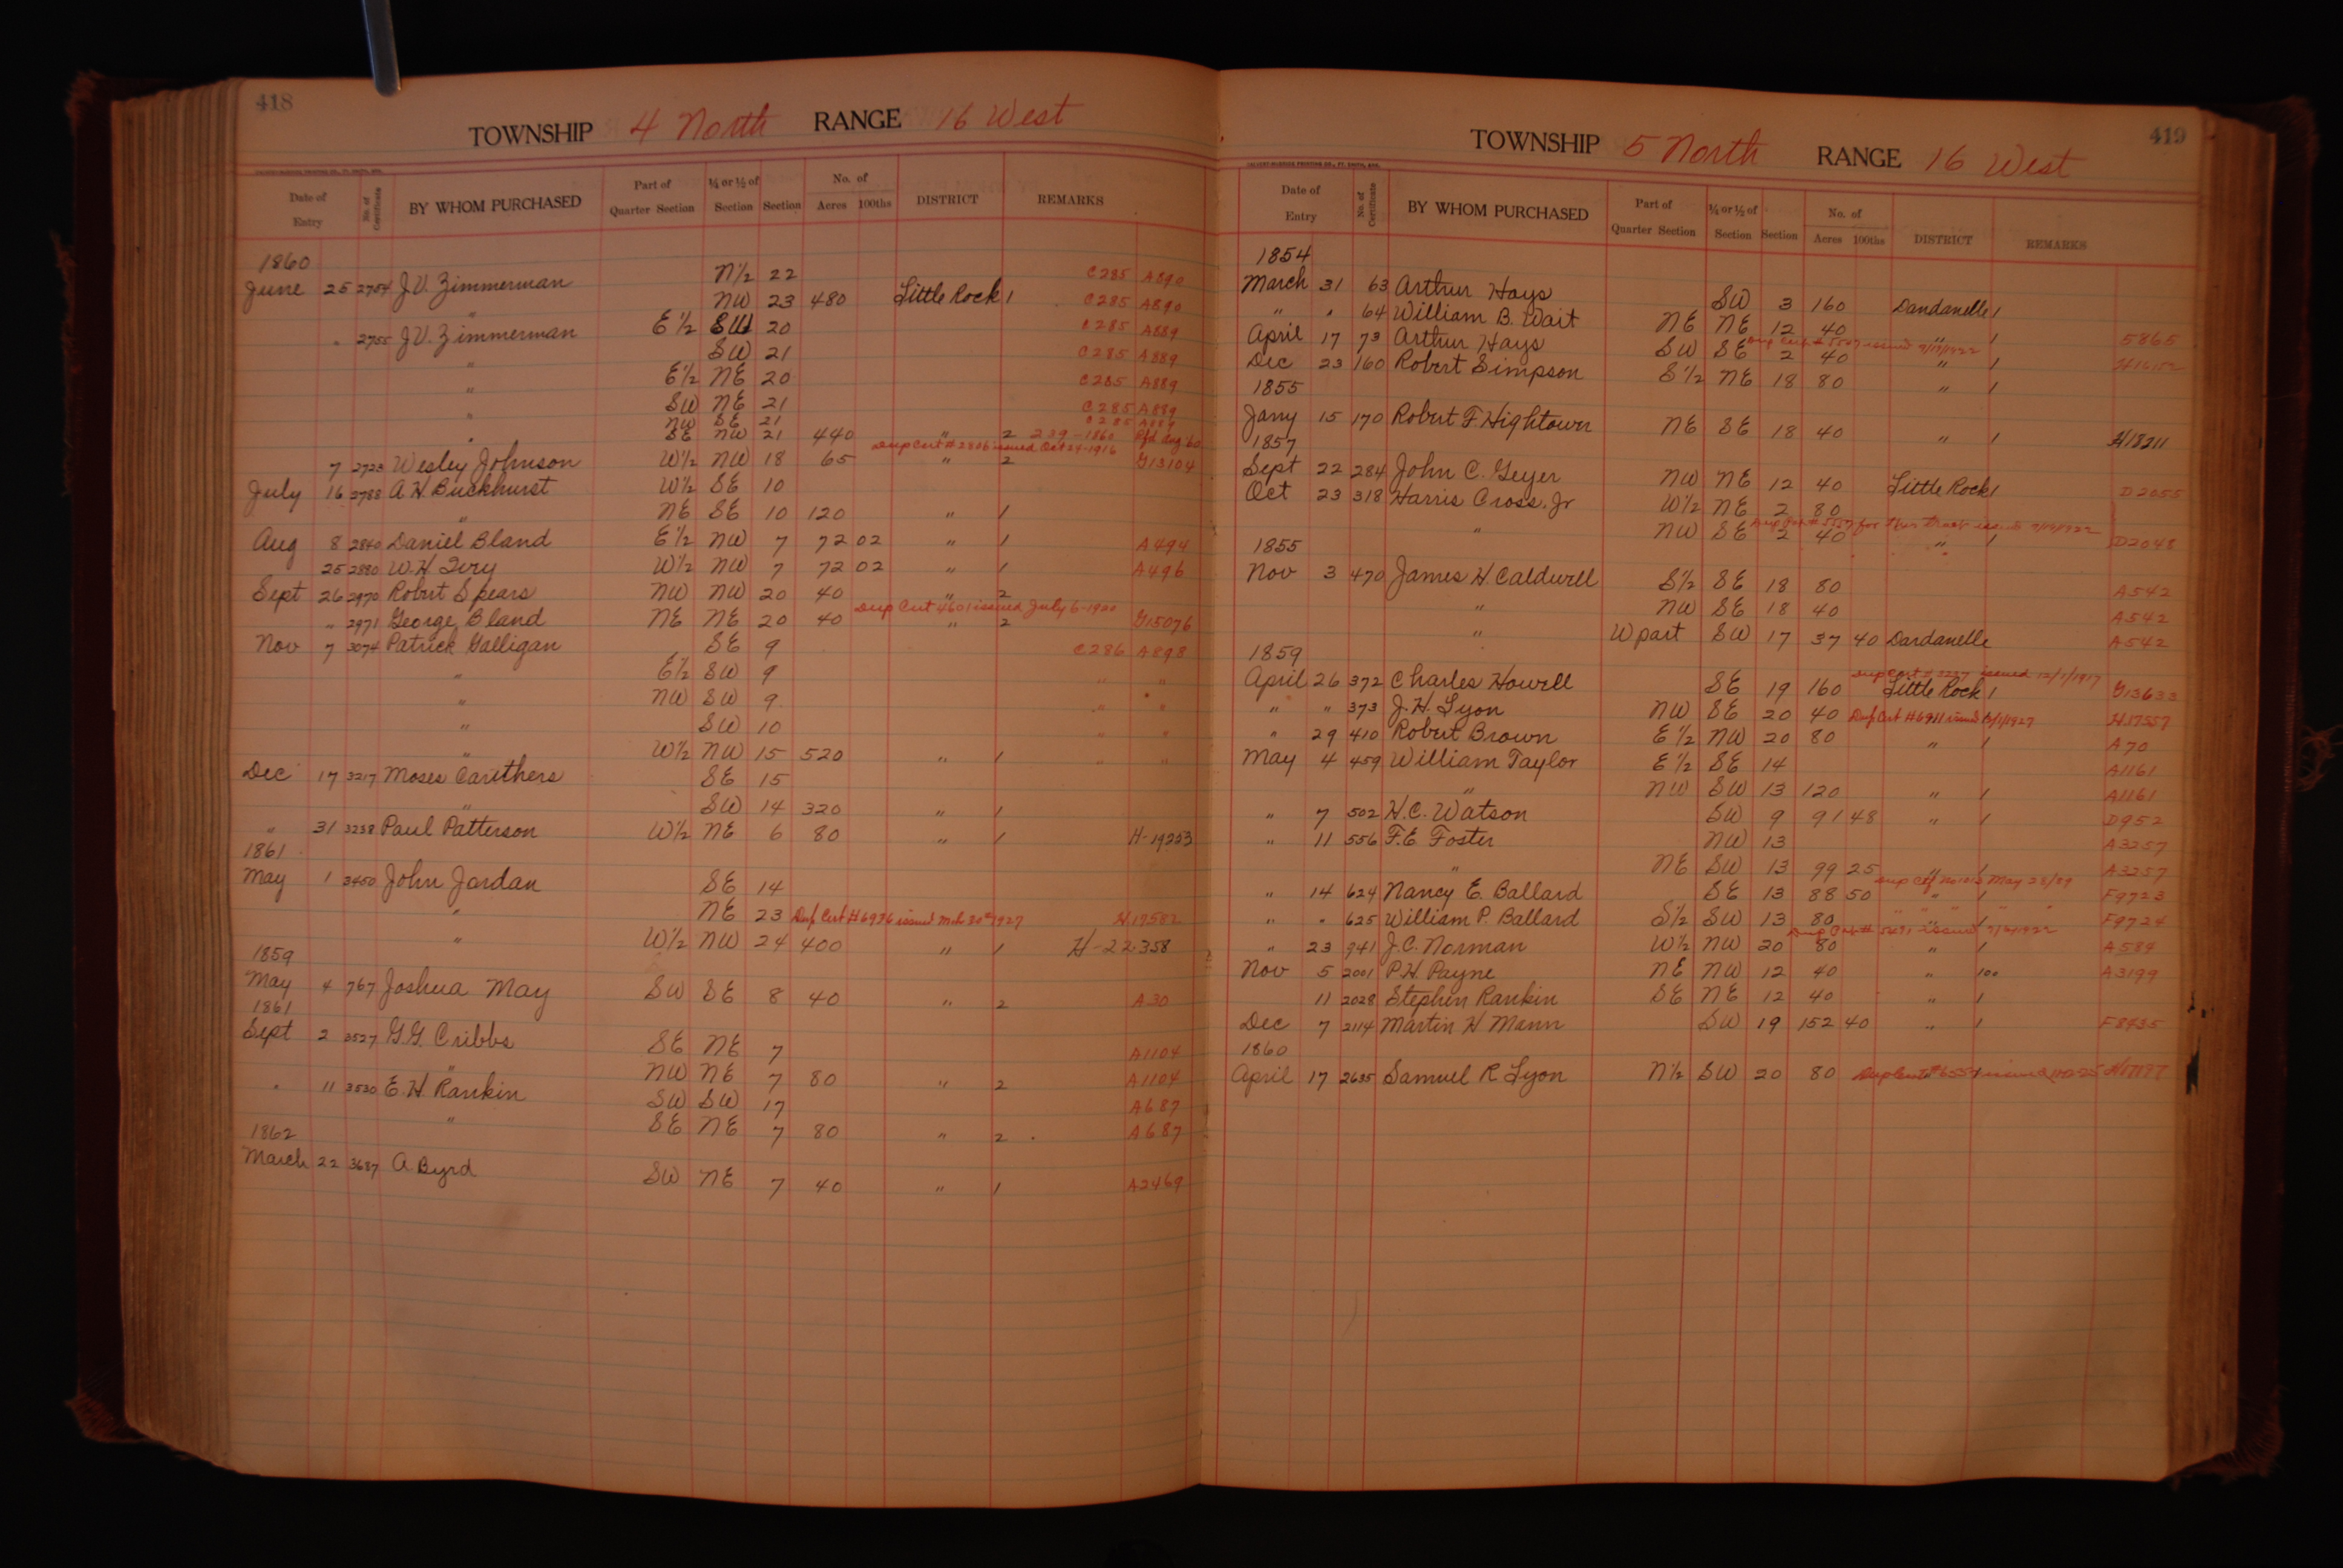 418
TOWNSHIP 4 North RANGE 16 West
Date of Entry No. of Certificate BY WHOM PURCHASED Part of Quarter Section ¼ or ½ of Section Section No. of Acres 100ths DISTRICT REMARKS
1860
June 25 2754 J.V. Zimmerman N½ 22 C285 A890
" NW 23 480 Little Rock 1 C285 A890
" 2755 J.V. Zimmerman E½ SW 20 C285 A889
" SW 21 C285 A889
" E½ NE 20 C285 A889
" SW NE 21 C285 A889
NW SE 21 C285 A889
" SE NW 21 440 " 2 239-1860 Rfd Aug 60
Dup Cert # 2806 issued Oct 24-1916
7 2723 Wesley Johnson W½ NW 18 65 " 2 G13104
July 16 2788 A.H. Buckhurst W½ SE 10
" NE SE 10 120 " 1
Aug 8 2840 Daniel Bland E½ NW 7 72 02 " 1 A494
25 2880 W.H. Ivry W½ NW 7 72 02 " 1 A496
Sept 26 2970 Robert Spears NW NW 20 40 " 2
Dup Cert 4601 issued July 6-1920
" 2971 George Bland NE NE 20 40 " 2 G15076
Nov 7 3074 Patrick Galligan SE 9 C286 A898
" E½ SW 9 " "
" NW SW 9 " "
" SW 10 " "
" W½ NW 15 520 " 1 " "
Dec 17 3217 Moses Carithers SE 15
" SW 14 320 " 1
" 31 3238 Paul Patterson W½ NE 6 80 " 1 H-19253
1861
May 1 3450 John Jordan SE 14
" NE 23 Dup Cert #6936 issued Mch 30th 1927 H.19582
" W½ NW 24 400 " 1 H-22358
1859
May 4 767 Joshua May SW SE 8 40 " 2 A30
1861
Sept 2 3527 G.G. Cribbs SE NE 7 A1104
" NW NE 7 80 " 2 A1104
" 11 3530 E.H. Rankin SW SW 17 A687
" SE NE 7 80 " 2 A687
1862
March 22 3687 A Byrd SW NE 7 40 " 1 A2469
419
TOWNSHIP 5 North RANGE 16 West
Date of Entry No. of Certificate BY WHOM PURCHASED Part of Quarter Section ¼ or ½ of Section Section No. of Acres 100ths DISTRICT REMARKS
1854
March 31 63 Arthur Hays SW 3 160 Dardanelle 1
" " 64 William B. Wait NE NE 12 40 " 1 5865
April 17 73 Arthur Hays SW SE 2 40 " 1 H16152
Dec 23 160 Robert Simpson S½ NE 18 80 " 1
1855
Jany 15 170 Robert F. Hightown NE SE 18 40 " 1 H18211
1857
Sept 22 284 John C. Geyer NW NE 12 40 Little Rock 1 D2055
Oct 23 318 Harris Cross. Jr W½ NE 2 80
Dup Cert # 5507 for this tract issued 7/17/1922
" NW SE 2 40 " 1 D2048
1855
Nov 3 470 James H. Caldwell S½ SE 18 80 A542
" NW SE 18 40 A542
" W part SW 17 37 40 Dardanelle A542
1859
Dup Cert # 3227 issued 12/1/1917
April 26 372 Charles Howell SE 19 160 Little Rock 1 G13633
" " 373 J.H. Lyon NW SE 20 40 Dup Cert #6911 issued 3/1/1927 H.17557
" 29 410 Robert Brown E½ NW 20 80 " 1 A70
May 4 459 William Taylor E½ SE 14 A1161
" NW SW 13 120 " 1 A1161
" 7 502 H.C. Watson SW 9 91 48 " 1 D952
" 11 556 F.E. Foster NW 13 A3257
" NE SW 13 99 25 " 1 A3257
" 14 624 Nancy E. Ballard SE 13 88 50 " 1 F9723
" " 625 William P. Ballard S½ SW 13 80 " 1 F9724
" 23 941 J.C. Norman W½ NW 20 80 " 1 A584
Nov 5 2001 P.H. Payne NE NW 12 40 " 100 A3199
11 2028 Stephen Rankin SE NE 12 40 " 1
Dec 7 2114 Martin H Mann SW 19 152 40 " 1 F8435
1860
April 17 2635 Samuel R Lyon N½ SW 20 80 H17197